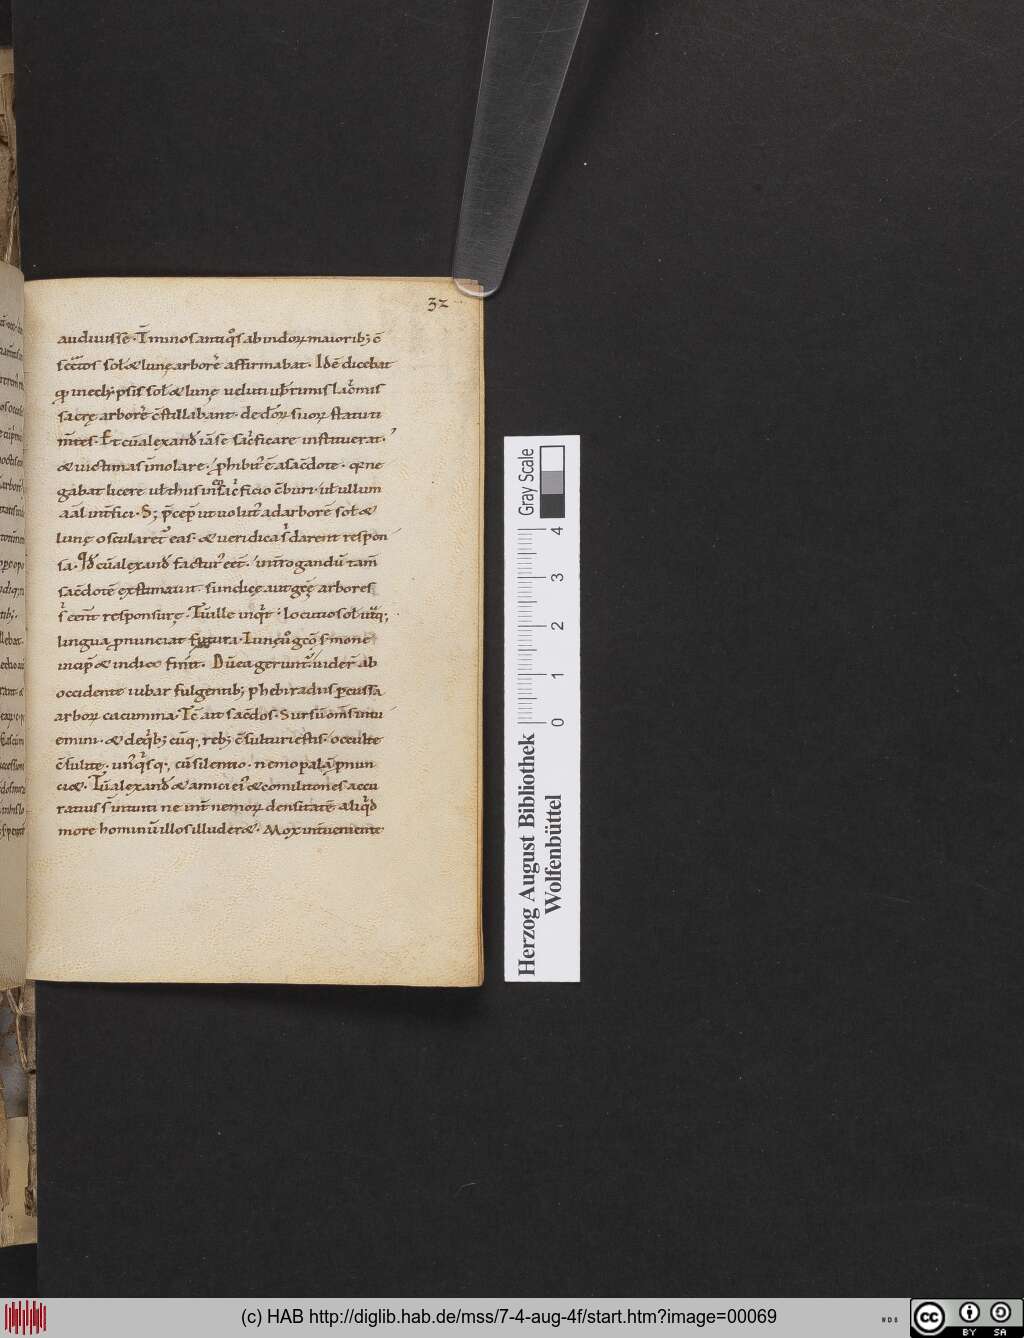 32
audiuisse · T̄ minos antiq°s ab indoꝝ maiorib; ē
sol &lunę arborē affirmabat · Idē dicebat
sol &lunę ueluti ub̄rrimis
sacrę arborē c̄stillabant · de suoꝝ statu ti
m̄tes · Et cū alexand iā se ficare instituerat ·
&uictimas īmolare · phibit' ē a sac̄dote · qꝛ ne
gabat licere ul' thus in ficio c̄buri · ul' ullum
aāl int̄fici · S; p̄cep̄ ut uolut' ad arborē sol &
lunę oscularet' eas · &ueridica s' darent respon
sa · Qd cū alexand factur' eēt · int̄rogandū tam̄
sac̄dotē exstimauit · si indicę aut gręcę arbores
cent responsurę · Tū ille inq't · locutio sol
lingua pnunciat futura · Lunę g̊cō s'mone
incip̄ &indico finit · Dū ea gerunt' uider' ab
occidente iubar fulgentib; phebi radiis pcussa
arboꝝ cacumina · Tc̄ ait sac̄dos · Sursū om̄s intu
emini · &de q'b; cūq, reb; c̄sulturi estis · occulte
c̄sulite · cū silentio · nemo palā pnun
ci& · Tū alexand &amici ei' &comilitones accu
ratius s' intuiti ne int̄ nemoꝝ densitatē aliq'd
more hominū illos illuder& · Mox int̄ueniente
Herzog August Bibliothek
Wolfenbüttel
0 1 2 3 4
Gray Scale
(c) HAB http://diglib.hab.de/mss/7-4-aug-4f/start.htm?image=00069
WDB
cc BY SA